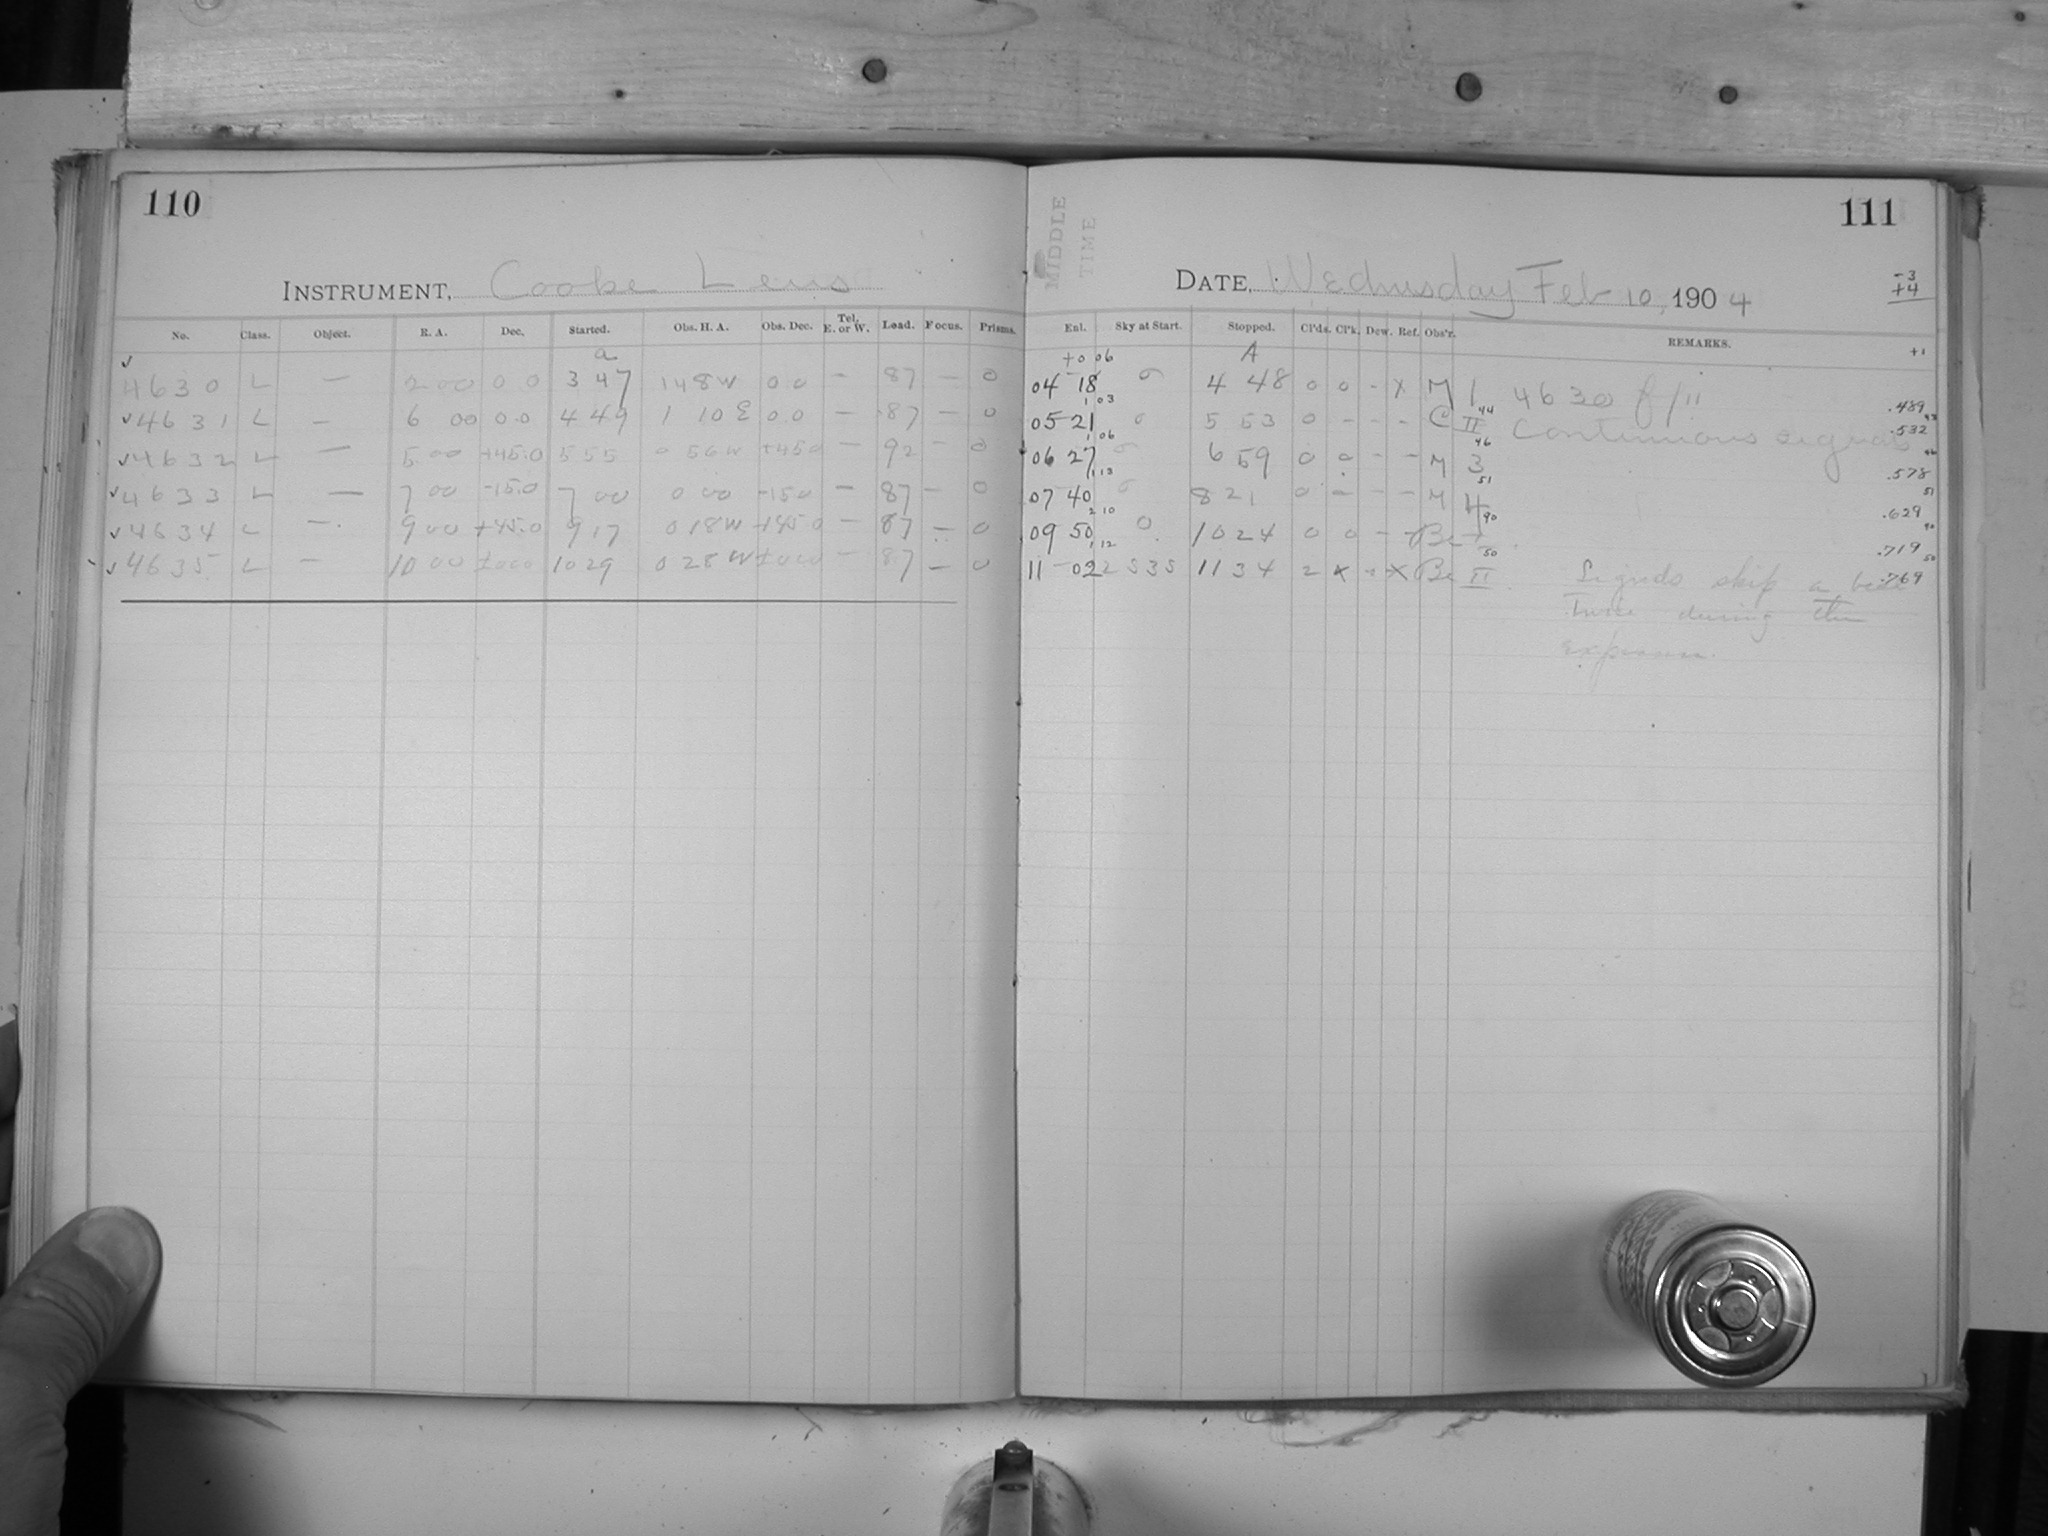 110
INSTRUMENT, Cooke Lens
No. Class. Object. R. A. Dec. Started. Obs. H. A. Obs. Dec. Tel. E. or W. Load. Focus. Prisms.
a
✓ 4630 L — 2 00 0 0 3 47 1 48 W 0 0 — 87 — 0
✓ 4631 L — 6 00 0 0 4 49 1 10 E 0 0 — 87 — 0
✓ 4632 L — 5 00 +45.0 5 55 0 56 W +45 0 — 92 — 0
✓ 4633 L — 7 00 -15.0 7 00 0 00 -15 0 — 87 — 0
✓ 4634 L — 9 00 +45.0 9 17 0 18 W +45 0 — 87 — 0
✓ 4635 L — 10 00 ±0 00 10 29 0 28 W ±0 00 — 87 — 0
MIDDLE
TIME
111
DATE, Wednesday Feb 10, 1904
-3
+4
+1
Enl. Sky at Start. Stopped. Cl'ds. Cl'k. Dew. Ref. Obs'r. REMARKS.
+0 06 A
04 18 0 4 48 0 0 - X M 1 4630 f/11 .489
1 03 44 43
05 21 0 5 53 0 - - - C II Continuous signals .532
1 06 46 46
06 27 0 6 59 0 0 - - M 3 .578
1 13 51 51
07 40 0 8 21 0 - - - M 4 .629
2 10 90 90
09 50 0 10 24 0 0 - - Be .719
1 12 50 50
11 02 2535 11 34 2 X - X Be II Signals skip a beat .769
Twice during the
exposure.